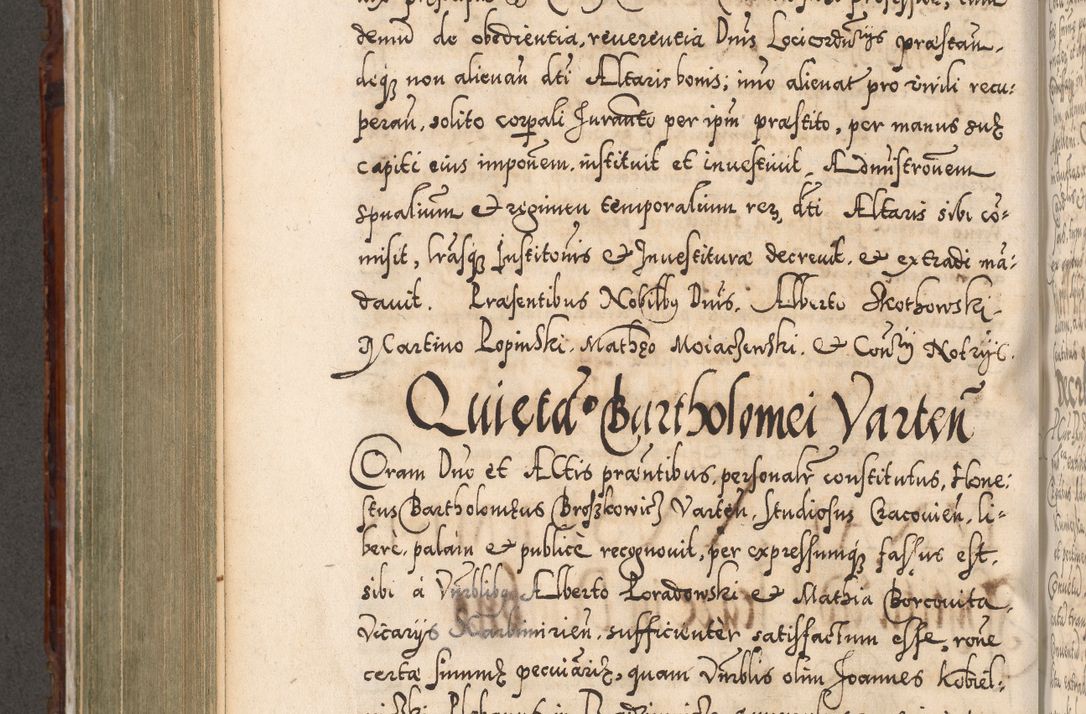 demū de obedientia, reverentia Dn̄is Locicordūijs præstan̄-
deq₃ non alienan̄ dti Altaris bonis; imo alienat pro virili recu-
peran̄, solito corpali Iuranto per ipm̄ præstito, per manus suæ
capiti eius imponem. instituit et investiuit, Admistronem
spualium & regimen temporalium rer, dti Altaris sibi co-
misit, lrāsq₃ Institonis & Inuestituræ decreuit, & extradi mā-
dauit. Præsentibus Nobilby Dn̄is. Alberto Skothowski.
Martino Lopinski. Mathæo Moiaczewski. & Consty Notrijs.
Quieta° Bartholomei Varten̄
Coram Dn̄o et Actis præn̄tibus, personalr̄ constitutus, Hone-
stus Bartholomæus Broszkowicz Varten̄, Studiosus Cracovien̄, li-
berè, palam & publicè recognovit, per expressumq₃ fassus est,
sibi à Vn̄rblibq Alberto Poradowski & Mathia Borcovita,
Vicarijs Kazimirien̄, sufficientèr satisfactum esse, rōne
certæ summæ pecuiariæ, quam Vn̄rblis olim Joannes Kobiel-